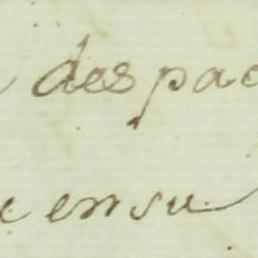 despac
en su